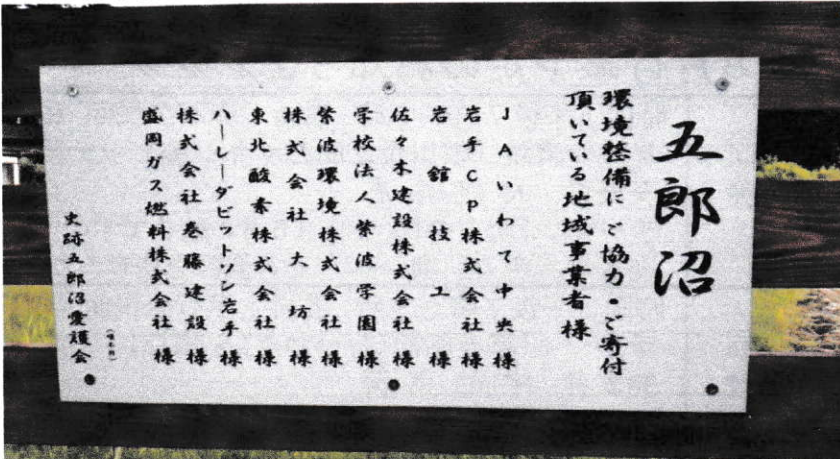 五郎沼
環境整備にご協力・ご寄付
頂いている地域事業者様
JAいわて中央 様
岩手CP株式会社 様
岩舘技工 様
佐々木建設株式会社 様
学校法人紫波学園 様
紫波環境株式会社 様
株式会社大坊 様
東北酸素株式会社 様
ハーレーダビットソン岩手 様
株式会社巻藤建設 様
盛岡ガス燃料株式会社 様
史跡五郎沼愛護会